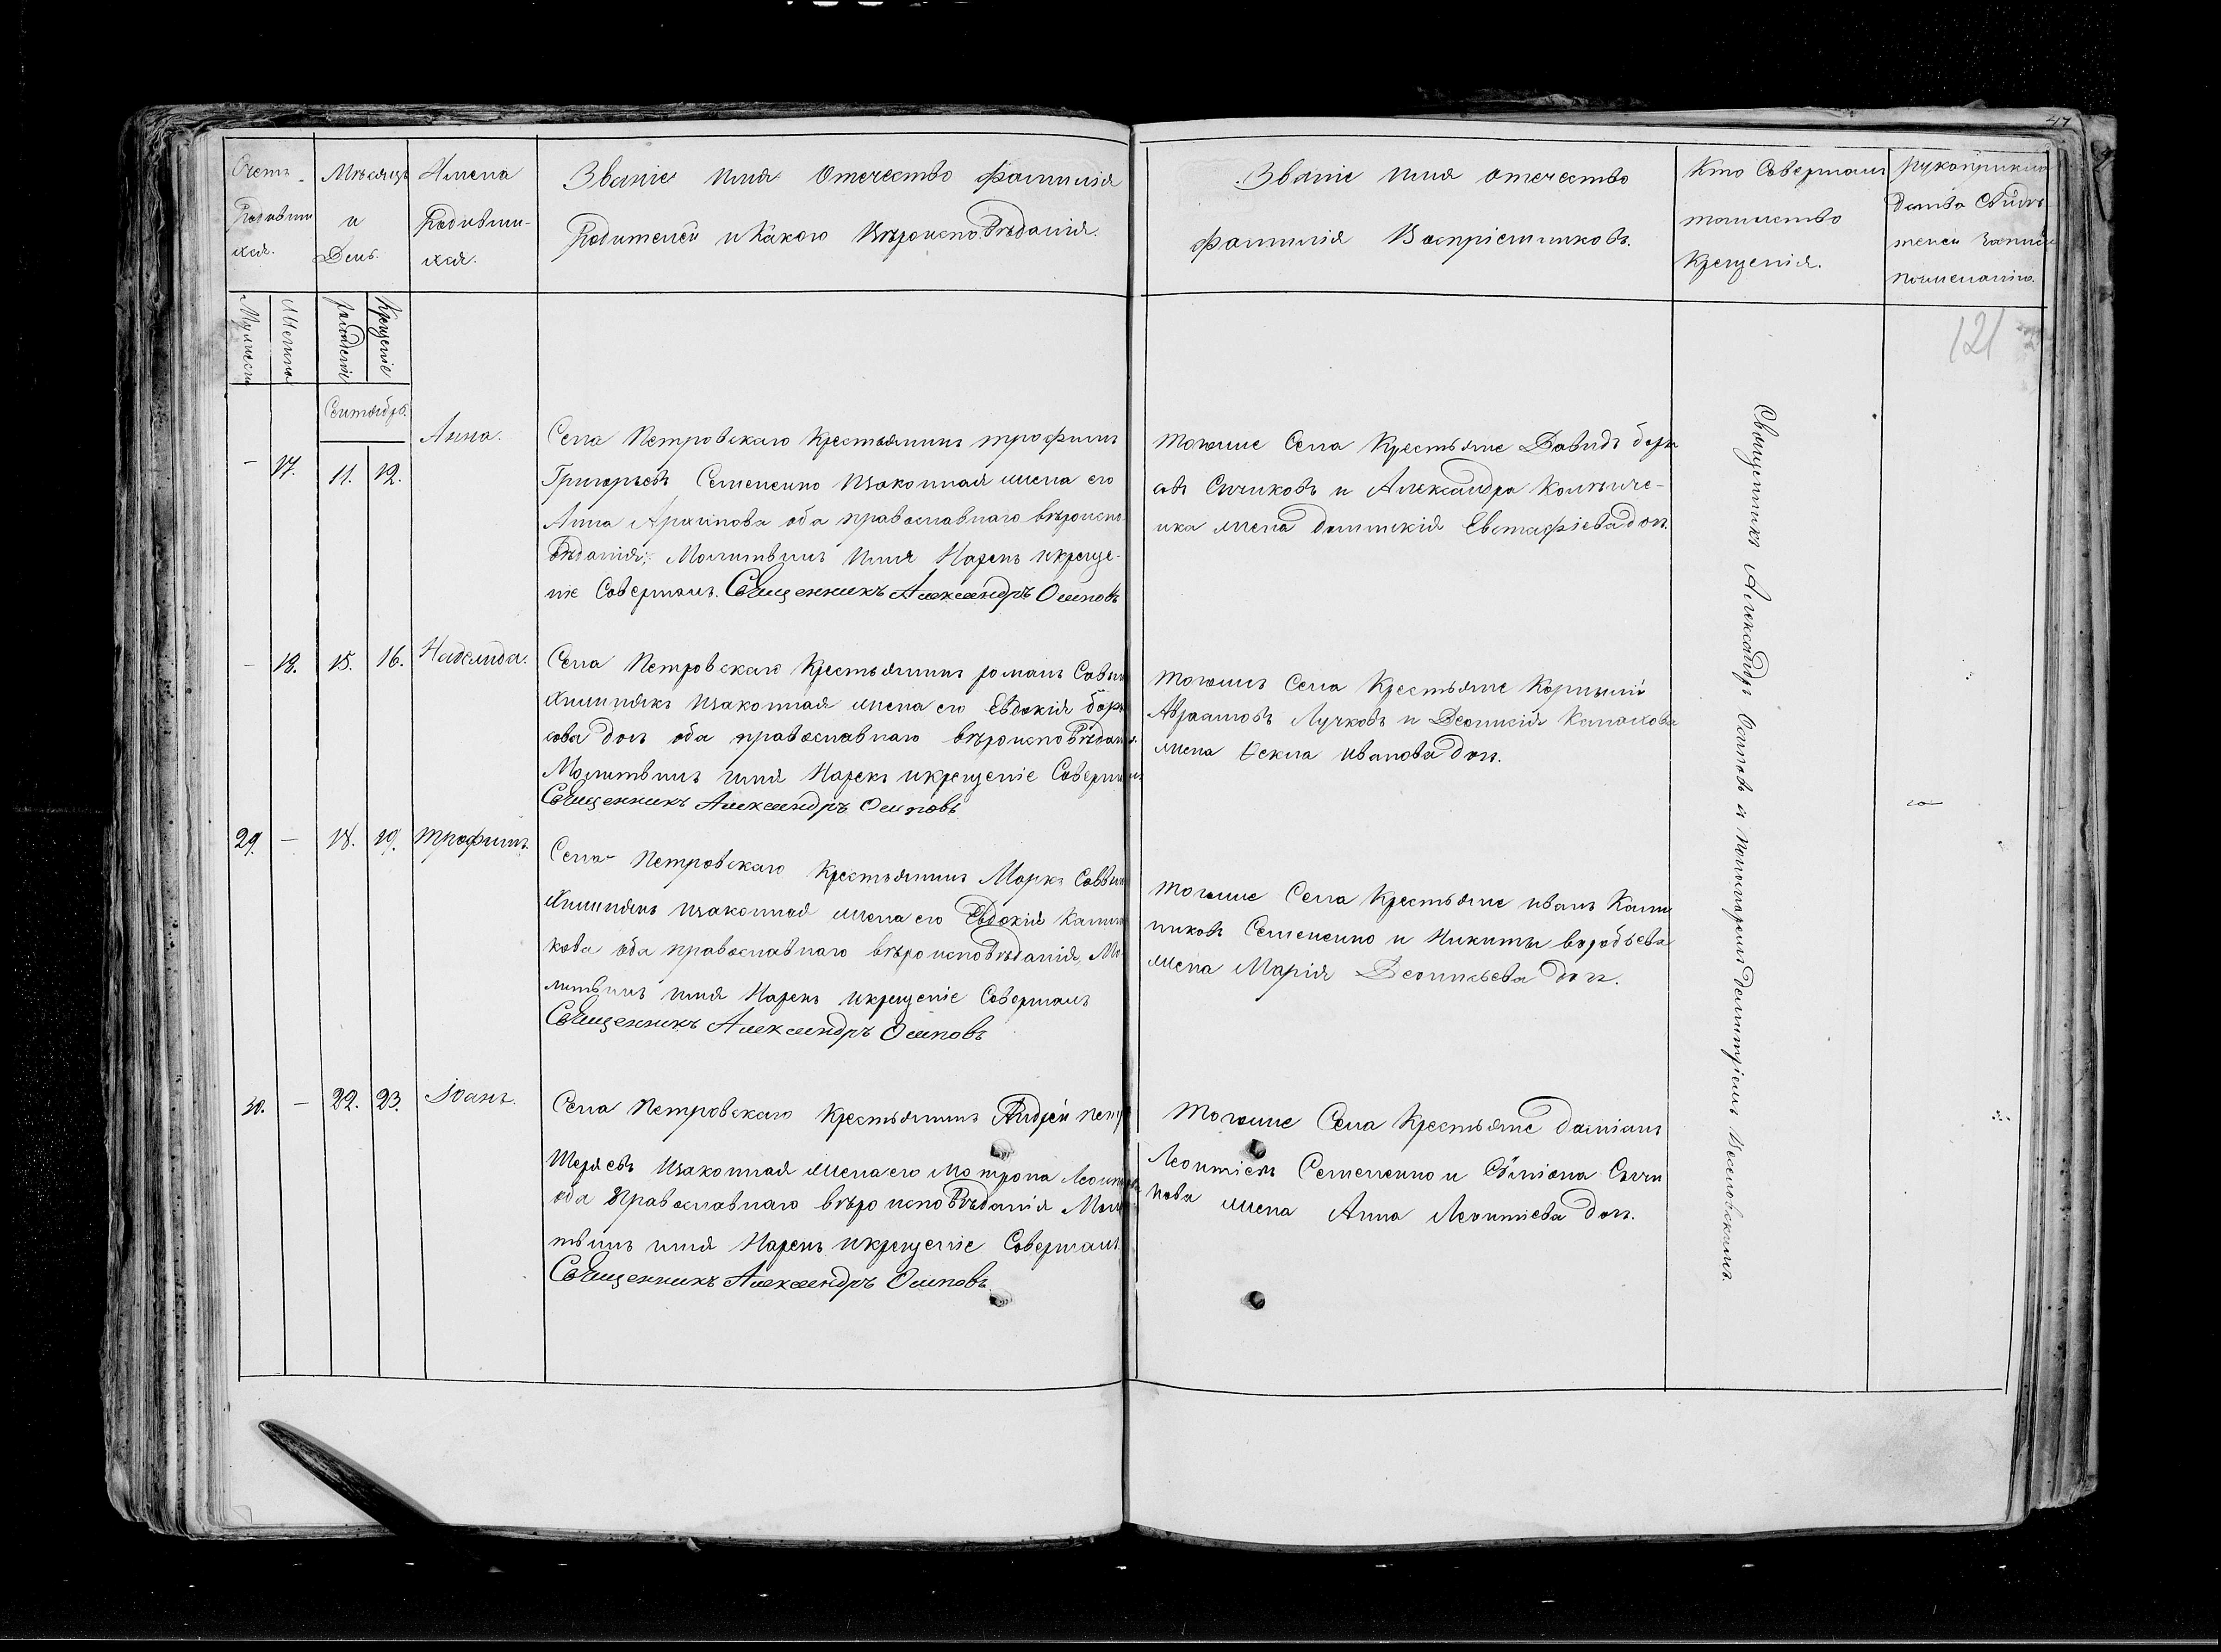 47
Счетъ
Родивши
хся.
Мѣсяцъ
и
День.
Имена
Родивши-
хся.
Званіе имя отечество фамилія
Родителей и какого вѣроисповѣданія.
Званіе имя отечество
фамилія Воспріемниковъ.
Кто Совершалъ
таинство
Крещенія.
рукоприкла
дство Свидѣ
телей записи
по желанію.
Мужеска
Женска
рожденіе
Крещеніе
121
Сентябрь.
— 17. 11. 12. Анна.
Села Петровскаго Крестьянинъ трофимъ
Григорьевъ Семененко изаконная жена его
Анна Архипова оба православнаго вѣроиспо-
вѣданія; Молитвилъ Имя Нарекъ икреще-
ніе Совершалъ. Священникъ Александръ Осиповъ
тогоже Села Крестьяне Давидъ бори
совъ Сычиковъ и Александра
жена Евстафіева доч.
— 18. 15. 16. Надежда.
Села Петровскаго Крестьянинъ романъ Савин
Химинякъ изаконная жена его Евдокія бори
сова доч оба православнаго вѣроисповѣданія.
Молитвилъ имя Нарекъ икрещеніе Совершалъ
Священникъ Александръ Осиповъ
тогожъ Села Крестьяне Корнилій
Авраамовъ Лучковъ и
жена Ѳекла иванова доч.
29. — 18. 19. трофимъ.
Села Петровскаго Крестьянинъ Маркъ Саввин
Химинякъ изаконная жена его Евдокія
кова оба православнаго вѣроисповѣданія, Мо-
литвилъ имя Нарекъ икрещеніе Совершалъ
Священникъ Александръ Осиповъ
тогоже Села Крестьяне иванъ
никовъ Семененко и Никиты воробьева
жена Марія Леонтьева доч.
30. — 22. 23. Іоанъ.
Села Петровскаго Крестьянинъ Андрей Петр
изаконная жена его Мотрона Леонтьева
оба Православнаго вѣроисповѣданія Моли
твилъ имя Нарекъ икрещеніе Совершалъ.
Священникъ Александръ Осиповъ.
Тогоже Села Крестьяне даміанъ
Леонтіевъ Семененко и Сѵмеона Сычи
кова жена Анна Леонтіева доч.
Священникъ Александръ Осиповъ и пономаремъ Димитріемъ Веселовскимъ.